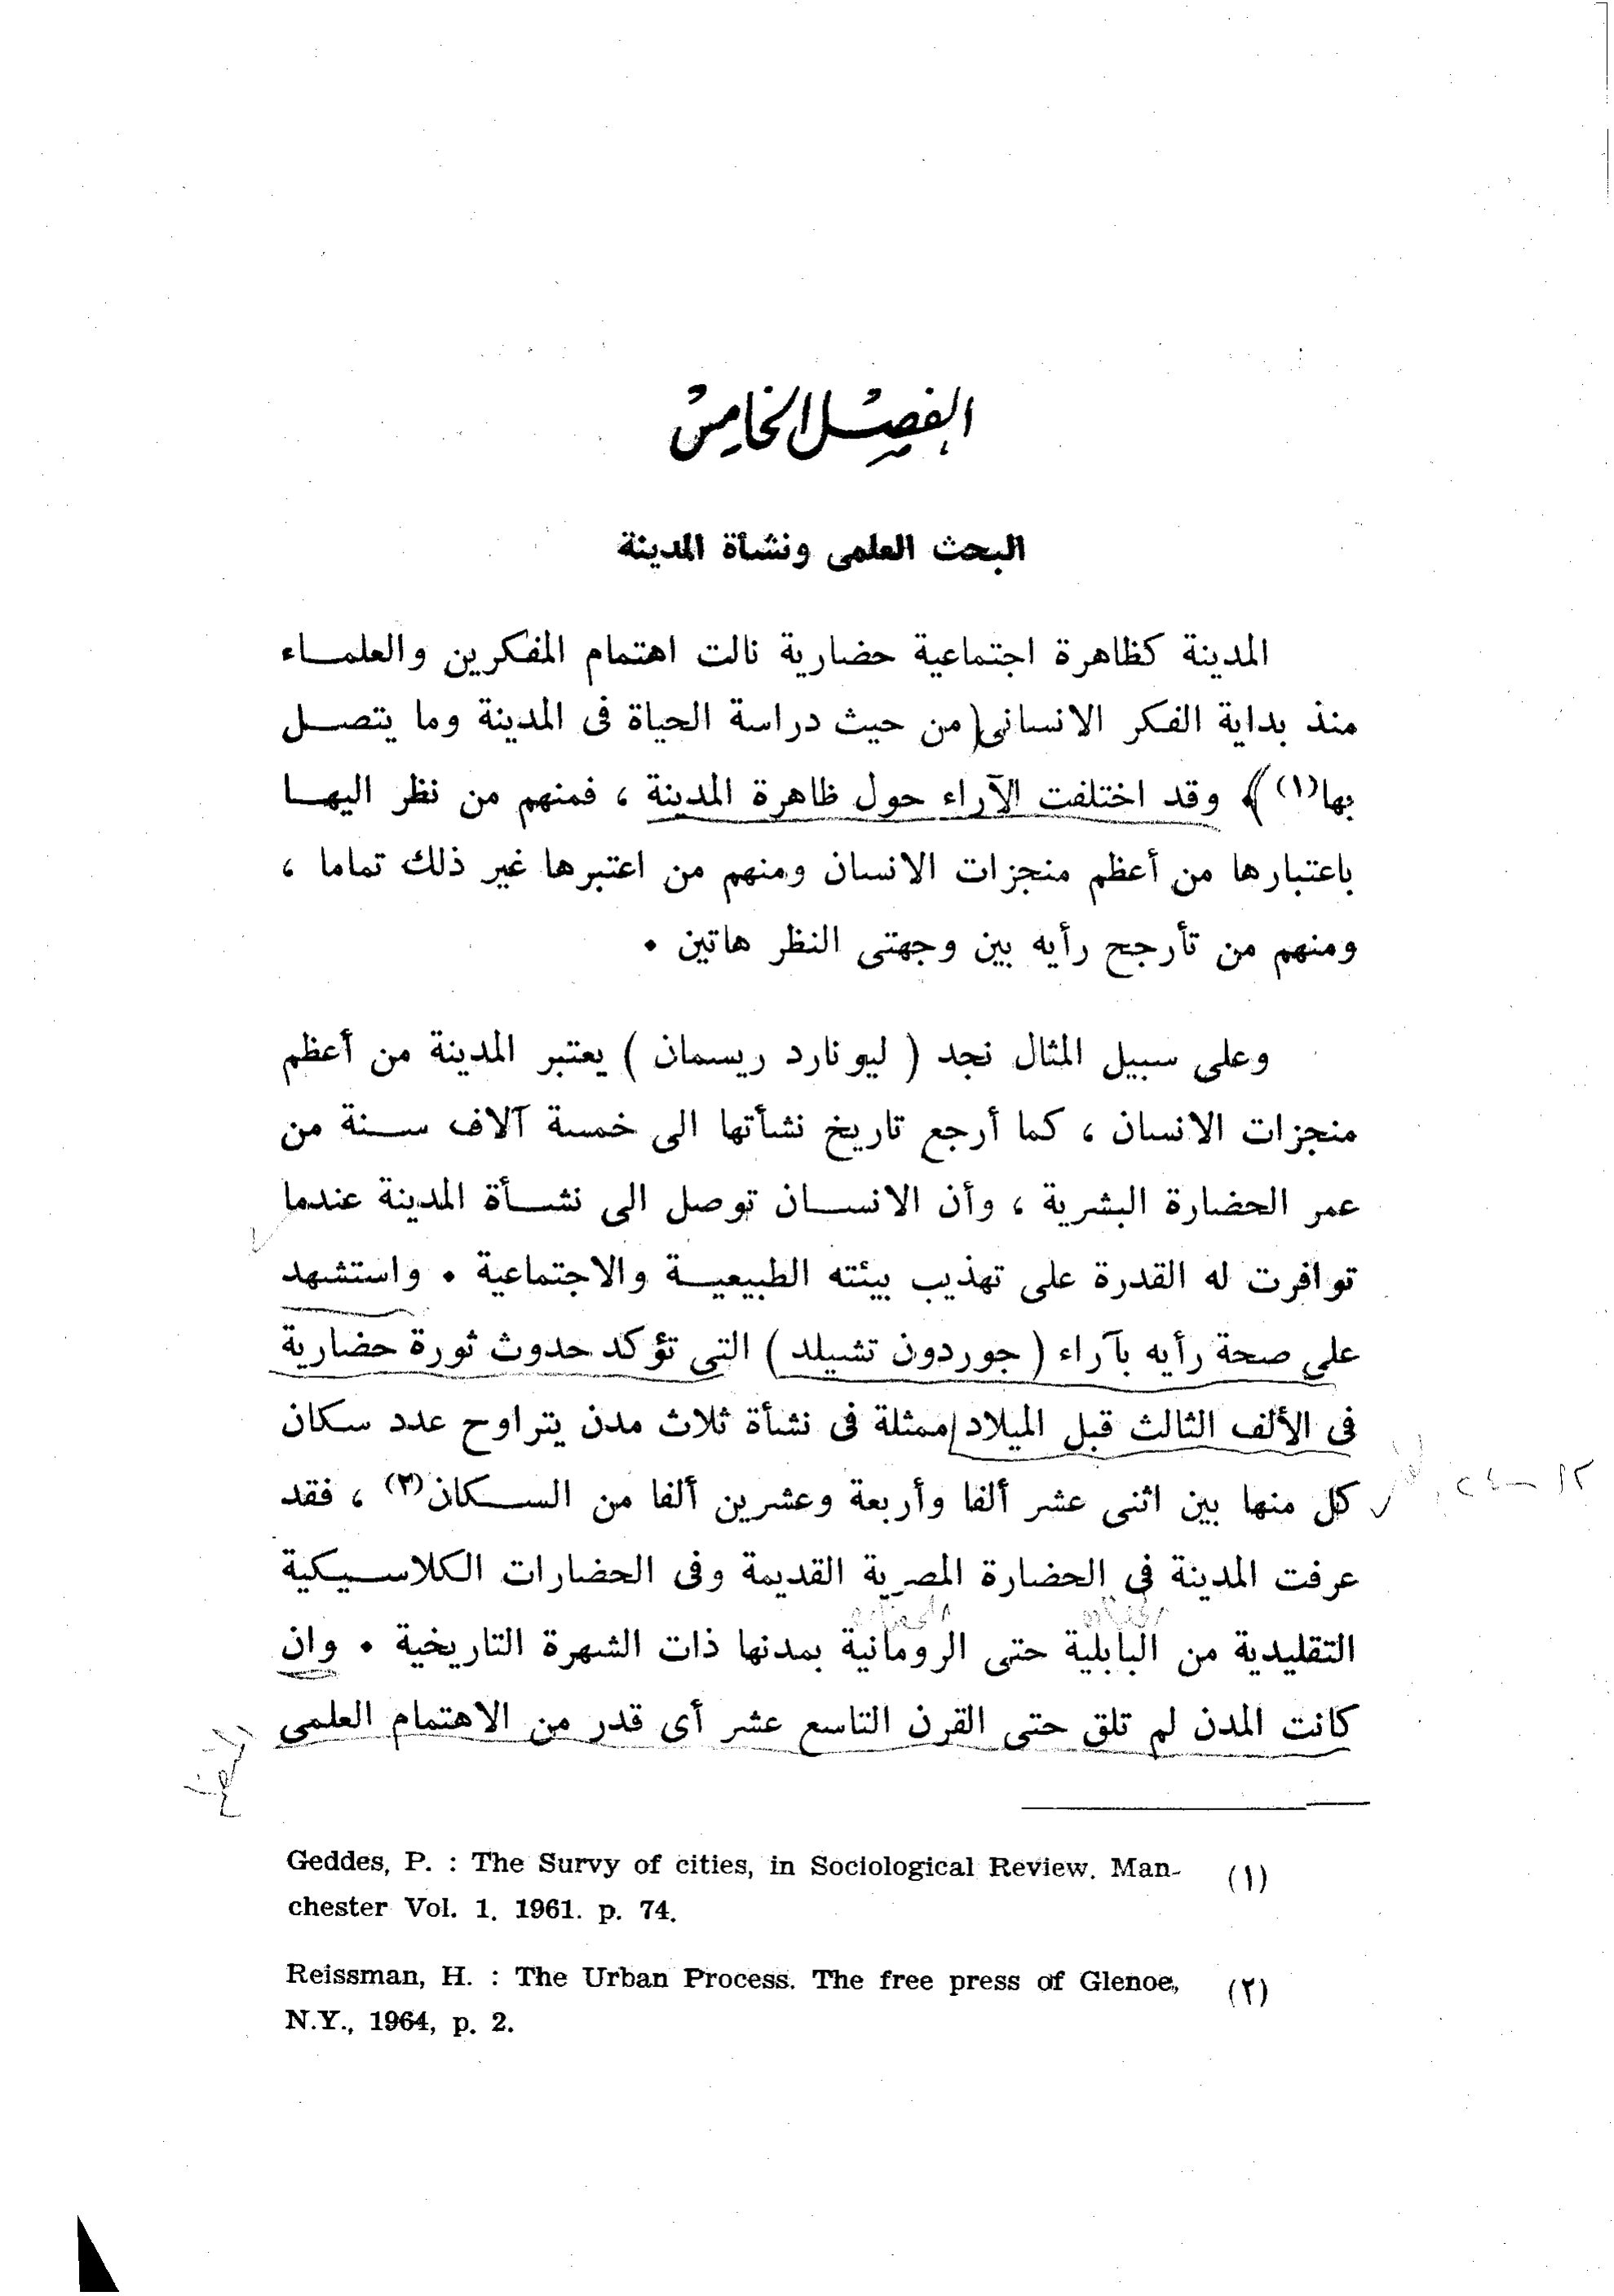 الفصل الخامس
البحث العلمى ونشأة المدينة
المدينة كظاهرة اجتماعية حضارية نالت اهتمام المفكرين والعلماء
منذ بداية الفكر الانسانى (من حيث دراسة الحياة فى المدينة وما يتصل
بها(١)) ٠ وقد اختلفت الآراء حول ظاهرة المدينة ، فمنهم من نظر اليها
باعتبارها من أعظم منجزات الانسان ومنهم من اعتبرها غير ذلك تماما ،
ومنهم من تأرجح رأيه بين وجهتى النظر هاتين ٠
وعلى سبيل المثال نجد ( ليونارد ريسمان ) يعتبر المدينة من أعظم
منجزات الانسان ، كما أرجع تاريخ نشأتها الى خمسة آلاف سنة من
عمر الحضارة البشرية ، وأن الانسان توصل الى نشأة المدينة عندما
توافرت له القدرة على تهذيب بيئته الطبيعية والاجتماعية ٠ واستشهد
على صحة رأيه بآراء ( جوردون تشيلد ) التى تؤكد حدوث ثورة حضارية
فى الألف الثالث قبل الميلاد ممثلة فى نشأة ثلاث مدن يتراوح عدد سكان
كل منها بين اثنى عشر ألفا وأربعة وعشرين ألفا من السكان(٢) ، فقد
١٢ — ٢٤
عرفت المدينة فى الحضارة المصرية القديمة وفى الحضارات الكلاسيكية
التقليدية من البابلية حتى الرومانية بمدنها ذات الشهرة التاريخية ٠ وان
كانت المدن لم تلق حتى القرن التاسع عشر أى قدر من الاهتمام العلمى
(١) Geddes, P. : The Survy of cities, in Sociological Review. Man-
chester Vol. 1. 1961. p. 74.
(٢) Reissman, H. : The Urban Process. The free press of Glenoe,
N.Y., 1964, p. 2.